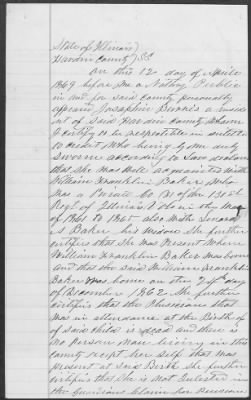 State of Illinois
Hardin County } SS
On this 12 day of April
1869 before me a Notary Public
in and for said County personally
appeared Josaphin a resid
ent of said Hardin County whom
I certify to be respectable in intitled
to credit who being by me duly
sworne according to Law declares
that she was well acquainted with
William Franklin Baker who
was a Private Co of the
Regt of Illinois Vols in the War
of 1861 to 1865 also with
Baker his widow She further
certifies that she was present when
William Franklin Baker was borne
and that the said William Franklin
Baker was borne on the day
of December 1862. She further
certifies that the Physician that
was in attendance at the Birth of
of said child is dead and there is
no person now living in this
County except her self that was
present at said Birth She further
certifies that she is not intrested in
the Claim for Pension